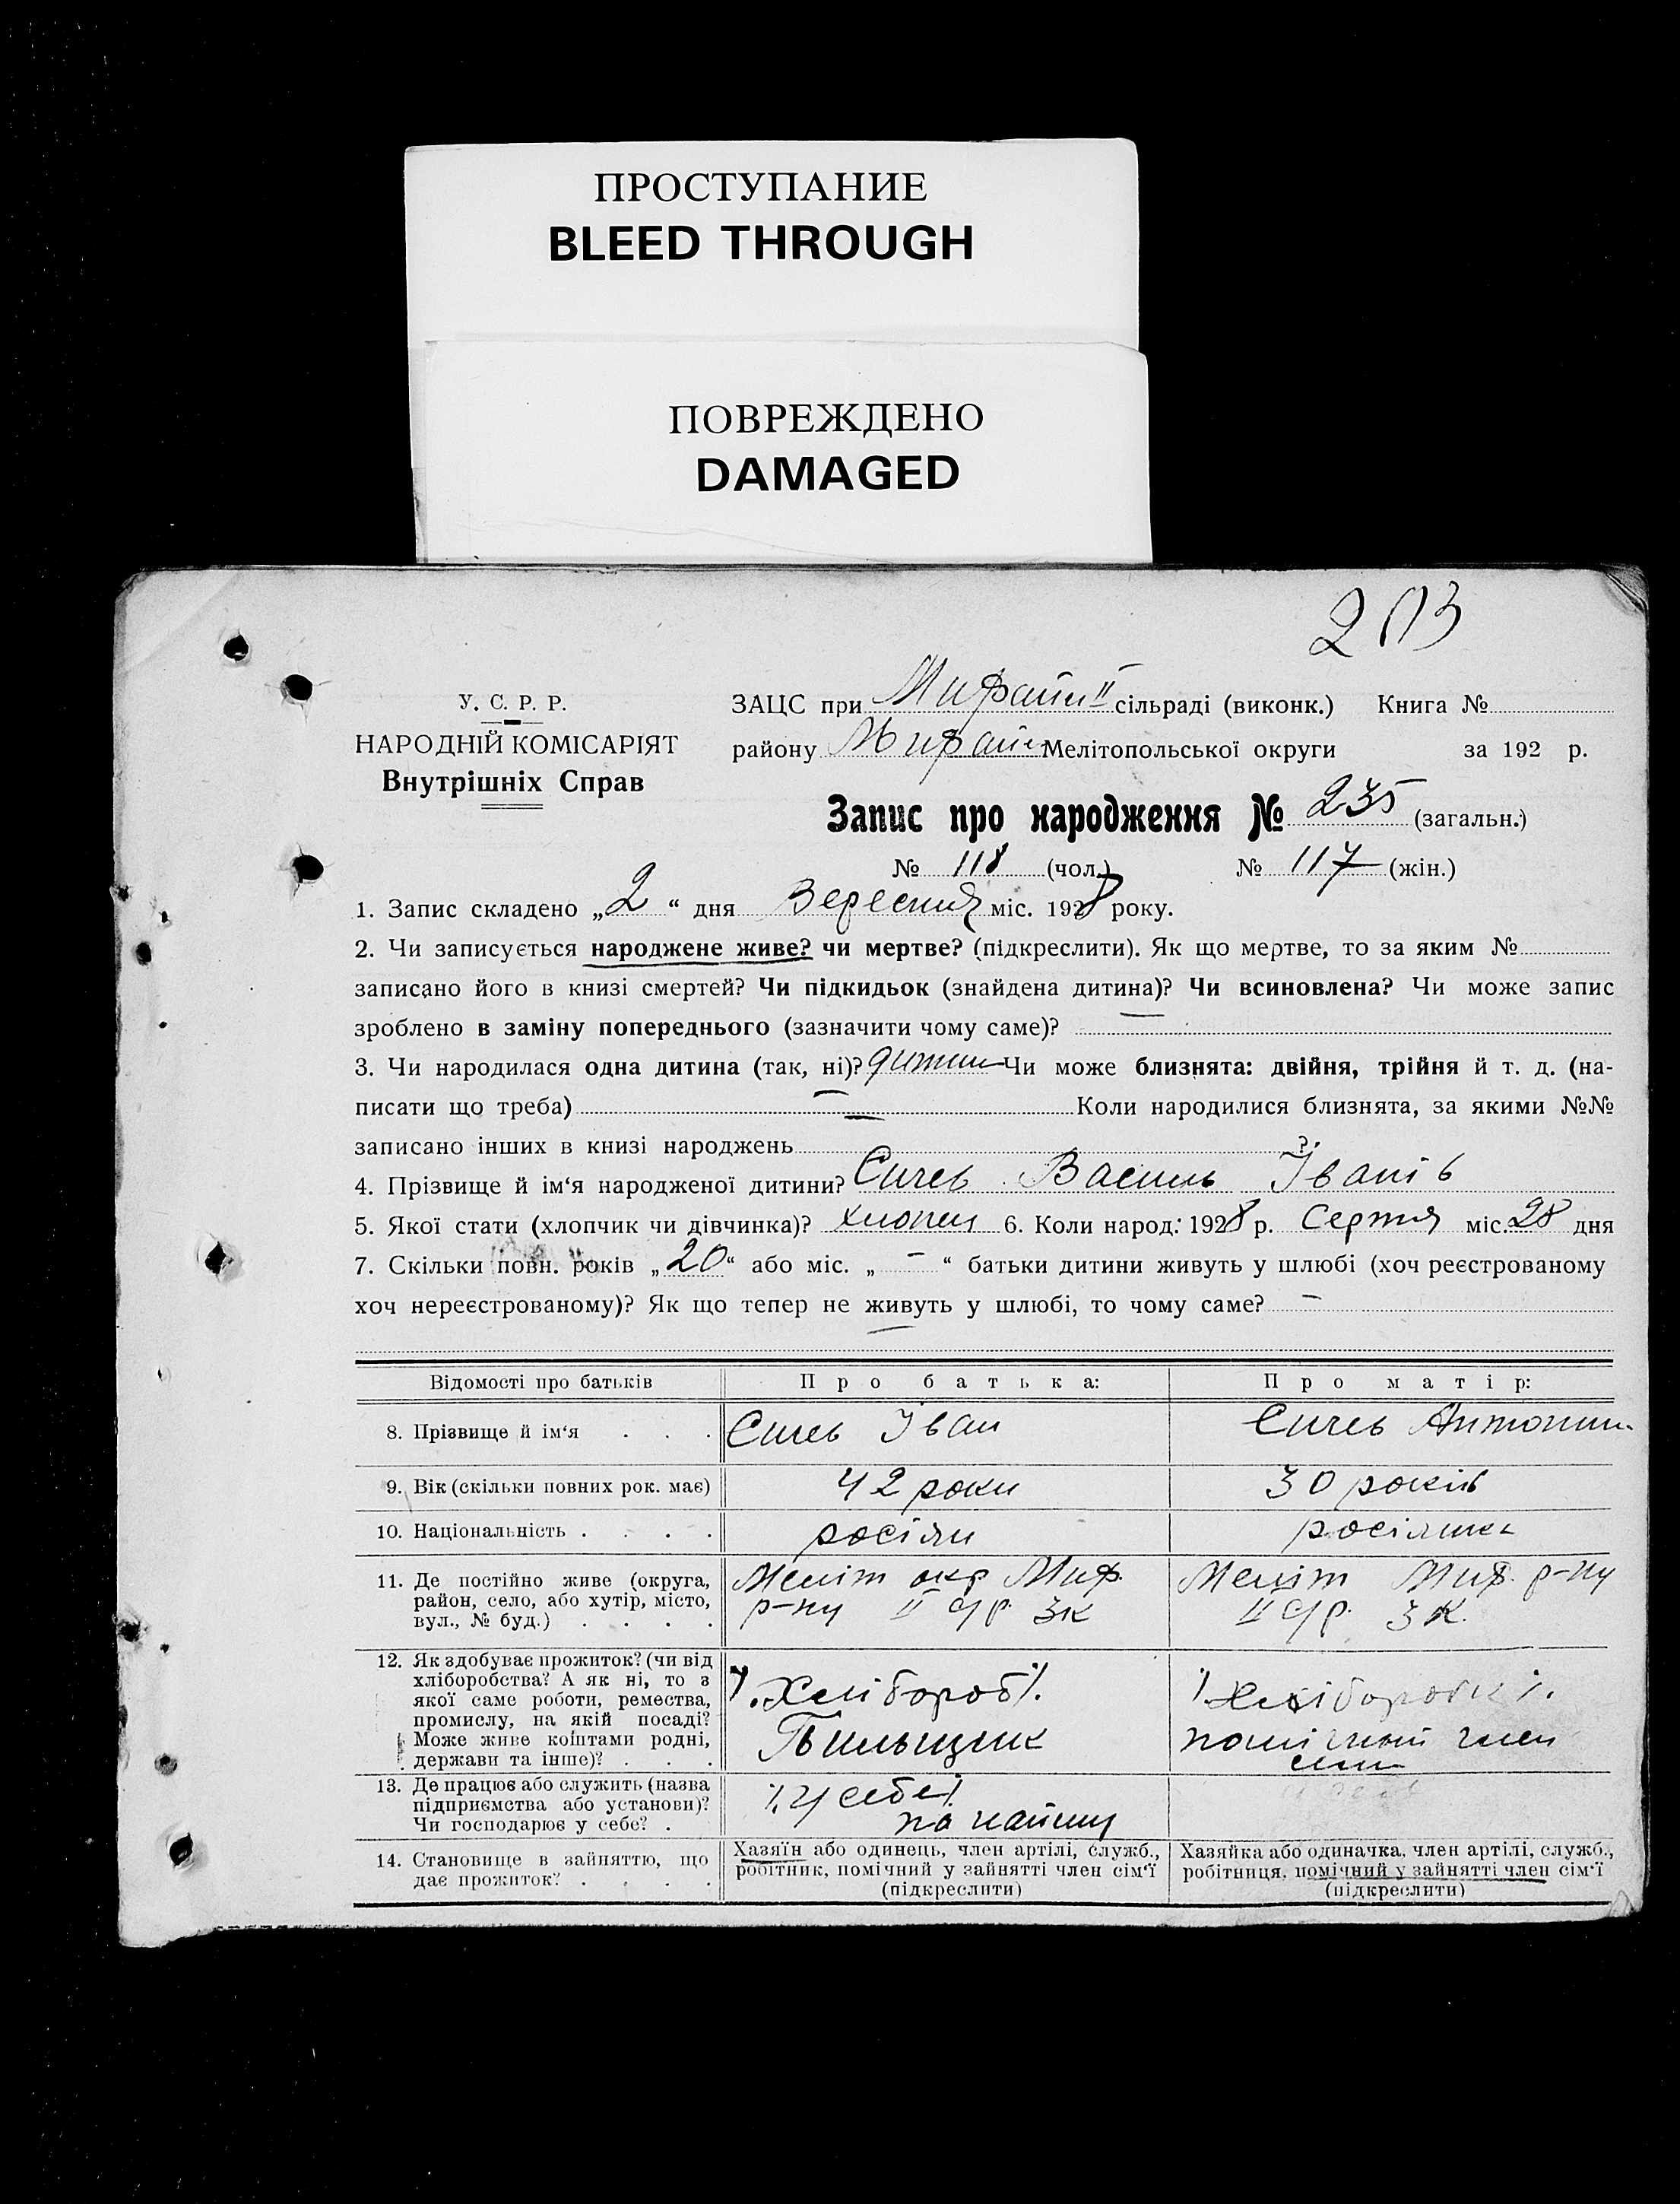 ПРОСТУПАНИЕ
BLEED THROUGH
ПОВРЕЖДЕНО
DAMAGED
У. С. Р. Р.
НАРОДНІЙ КОМІСАРІЯТ
Внутрішніх Справ
ЗАЦС при II сільраді (виконк.) Книга №
району Мелітопольської округи за 192 р.
Запис про народження № 235 (загальн.)
№ 118 (чол.) № 117 (жін.)
1. Запис складено „2“ дня Вересня міс. 1928 року.
2. Чи записується народжене живе? чи мертве? (підкреслити). Як що мертве, то за яким №
записано його в книзі смертей? Чи підкидьок (знайдена дитина)? Чи всиновлена? Чи може запис
зроблено в заміну попереднього (зазначити чому саме)? —
3. Чи народилася одна дитина (так, ні)? Чи може близнята: двійня, трійня й т. д. (на-
писати що треба) — Коли народилися близнята, за якими №№
записано інших в книзі народжень — ?
4. Прізвище й ім‘я народженої дитини? Сичев Василь Іванів
5. Якої стати (хлопчик чи дівчинка)? хлопец 6. Коли народ: 1928 р. Серпня міс. 28 дня
7. Скільки повн. років „20“ або міс. „ – “ батьки дитини живуть у шлюбі (хоч реєстрованому
хоч нереєстрованому)? Як що тепер не живуть у шлюбі, то чому саме? –
Відомості про батьків Про батька: Про матір:
8. Прізвище й ім‘я . . . Сичев Іван Сичев
9. Вік (скільки повних рок. має) 42 роки 30 років
10. Національність . . . . росіян росіянка
11. Де постійно живе (округа, Меліт окр Миф. Меліт Миф. р-ну
район, село, або хутір, місто, р-ну II с/р. ЗК II с/р. ЗК.
вул., № буд.) . . . .
12. Як здобуває прожиток? (чи від
хліборобства? А як ні, то з Хлібороб
якої саме роботи, ремества,
промислу, на якій посаді?
Може живе коштами родні, член
держави та інше)? . . .
13. Де працює або служить (назва у себе
підприємства або установи)? по найму
Чи господарює у себе? .
14. Становище в зайняттю, що Хазяїн або одинець, член артілі, служб., Хазяйка або одиначка, член артілі, служб.,
дає прожиток? . . . . робітник, помічний у зайнятті член сім‘ї робітниця, помічний у зайнятті член сім‘ї
(підкреслити) (підкреслити)